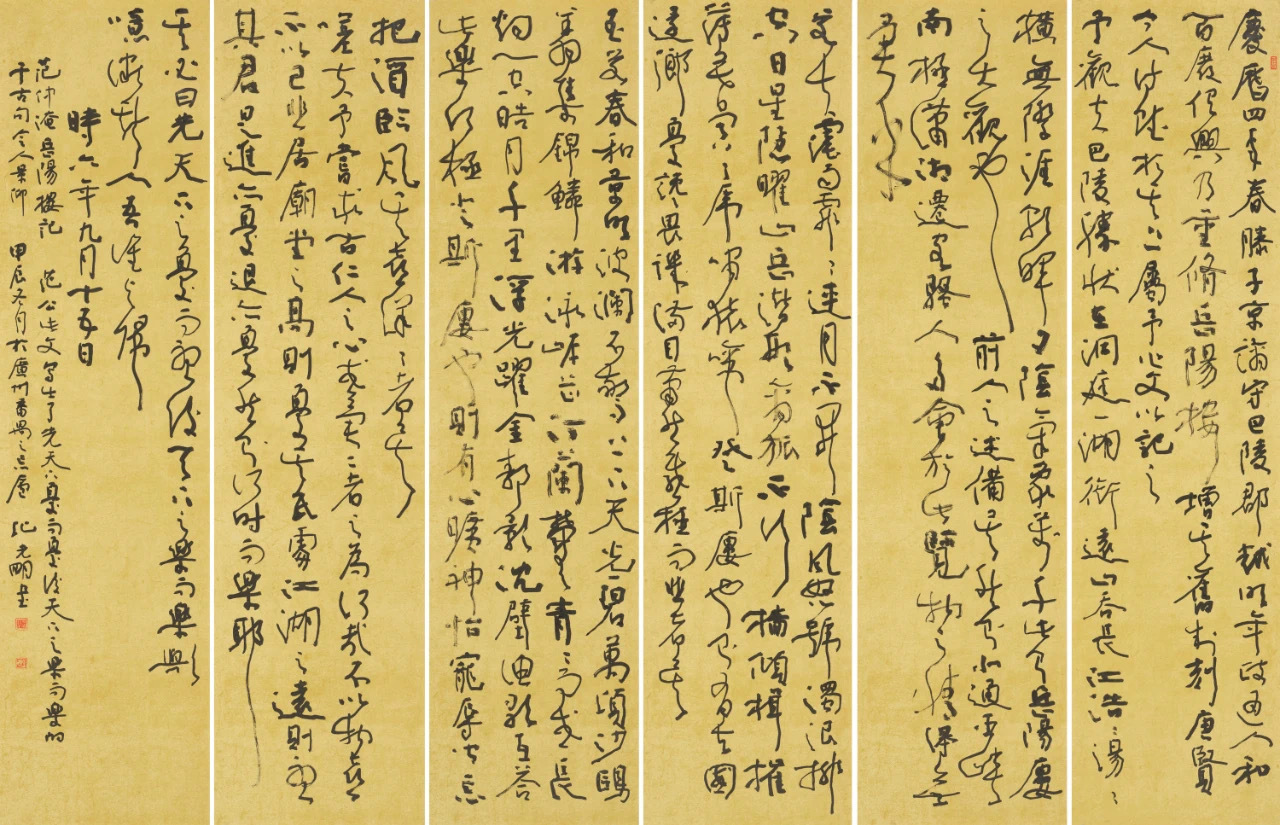 慶曆四年春滕子京謫守巴陵郡越明年政通人和
百廢俱興乃重修岳陽樓增其舊制刻唐賢
今人詩賦於其上屬予作文以記之
予觀夫巴陵勝狀在洞庭一湖銜遠山吞長江浩浩湯湯
橫無際涯朝暉夕陰氣象萬千此則岳陽樓
之大觀也 前人之述備矣然則北通巫峽
南極瀟湘遷客騷人多會於此覽物之情得無
異乎
若夫霪雨霏霏連月不開陰風怒號濁浪排
空日星隱曜山岳潛形商旅不行檣傾楫摧
薄暮冥冥虎嘯猿啼登斯樓也則有去國
懷鄉憂讒畏譏滿目蕭然感極而悲者矣
至若春和景明波瀾不驚上下天光一碧萬頃沙鷗
翔集錦鱗游泳岸芷汀蘭郁郁青青而或長
煙一空皓月千里浮光躍金靜影沉璧漁歌互答
此樂何極登斯樓也則有心曠神怡寵辱皆忘
把酒臨風其喜洋洋者矣
嗟夫予嘗求古仁人之心或異二者之為何哉不以物喜
不以己悲居廟堂之高則憂其民處江湖之遠則憂
其君是進亦憂退亦憂然則何時而樂耶
其必曰先天下之憂而憂後天下之樂而樂歟
噫微斯人吾誰與歸
時六年九月十五日
范仲淹岳陽樓記 范公此文寫出了先天下憂而憂後天下之樂而樂的
千古句令人景仰 甲辰冬月於廣州番禺之廬 書